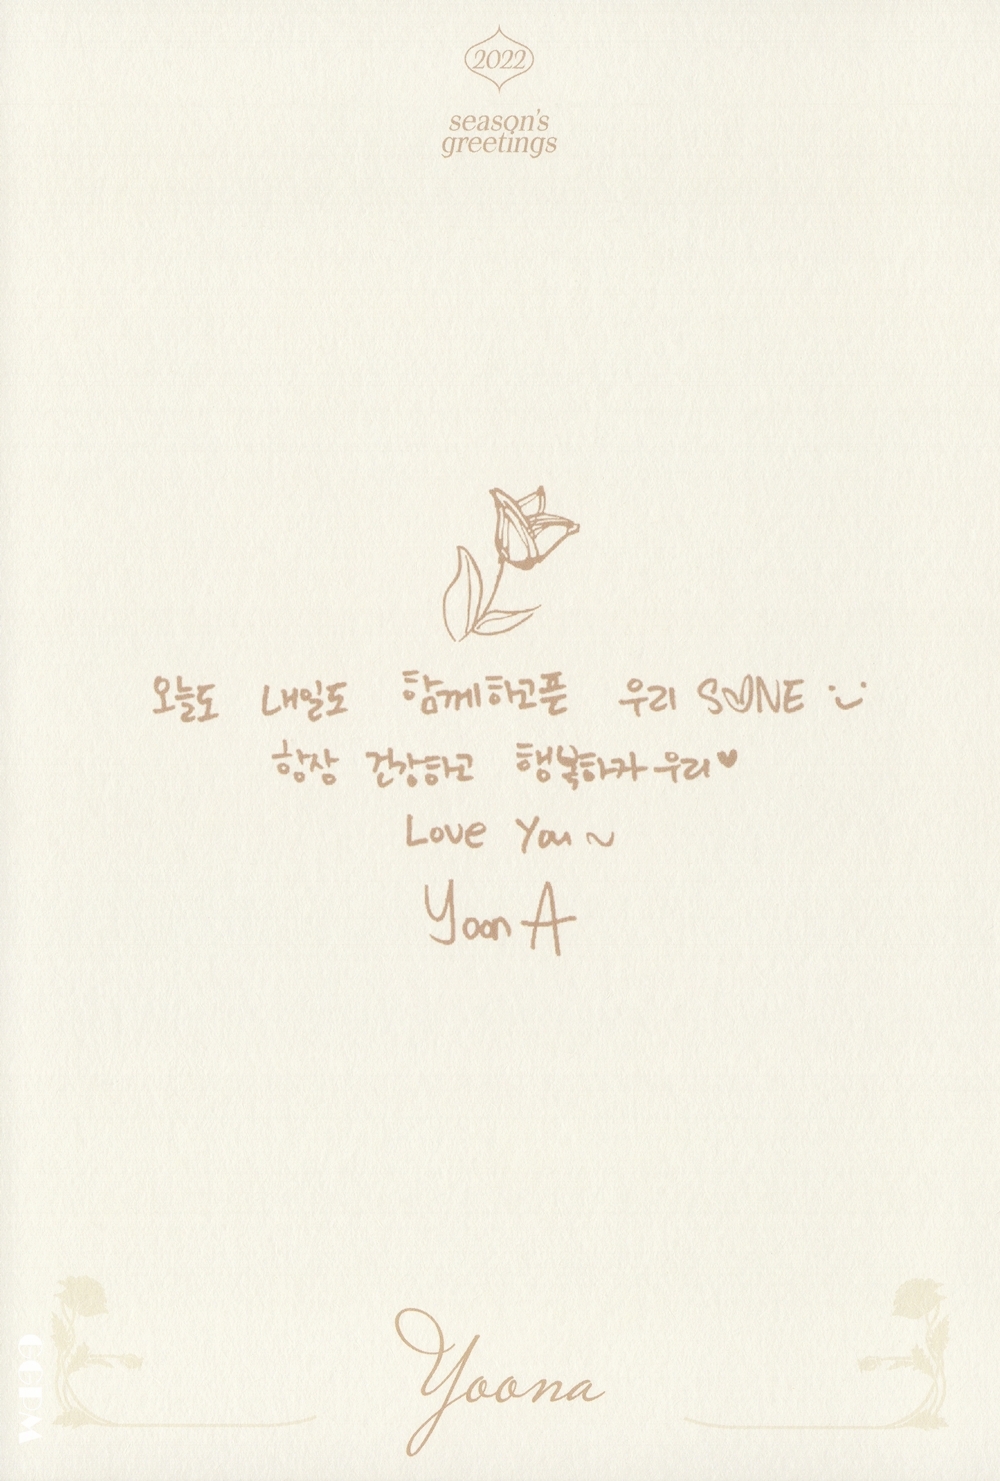 2022
season's
greetings
오늘도 내일도 함께하고픈 우리 SONE
항상 건강하고 행복하자 우리♥
Love You ~
YoonA
Yoona